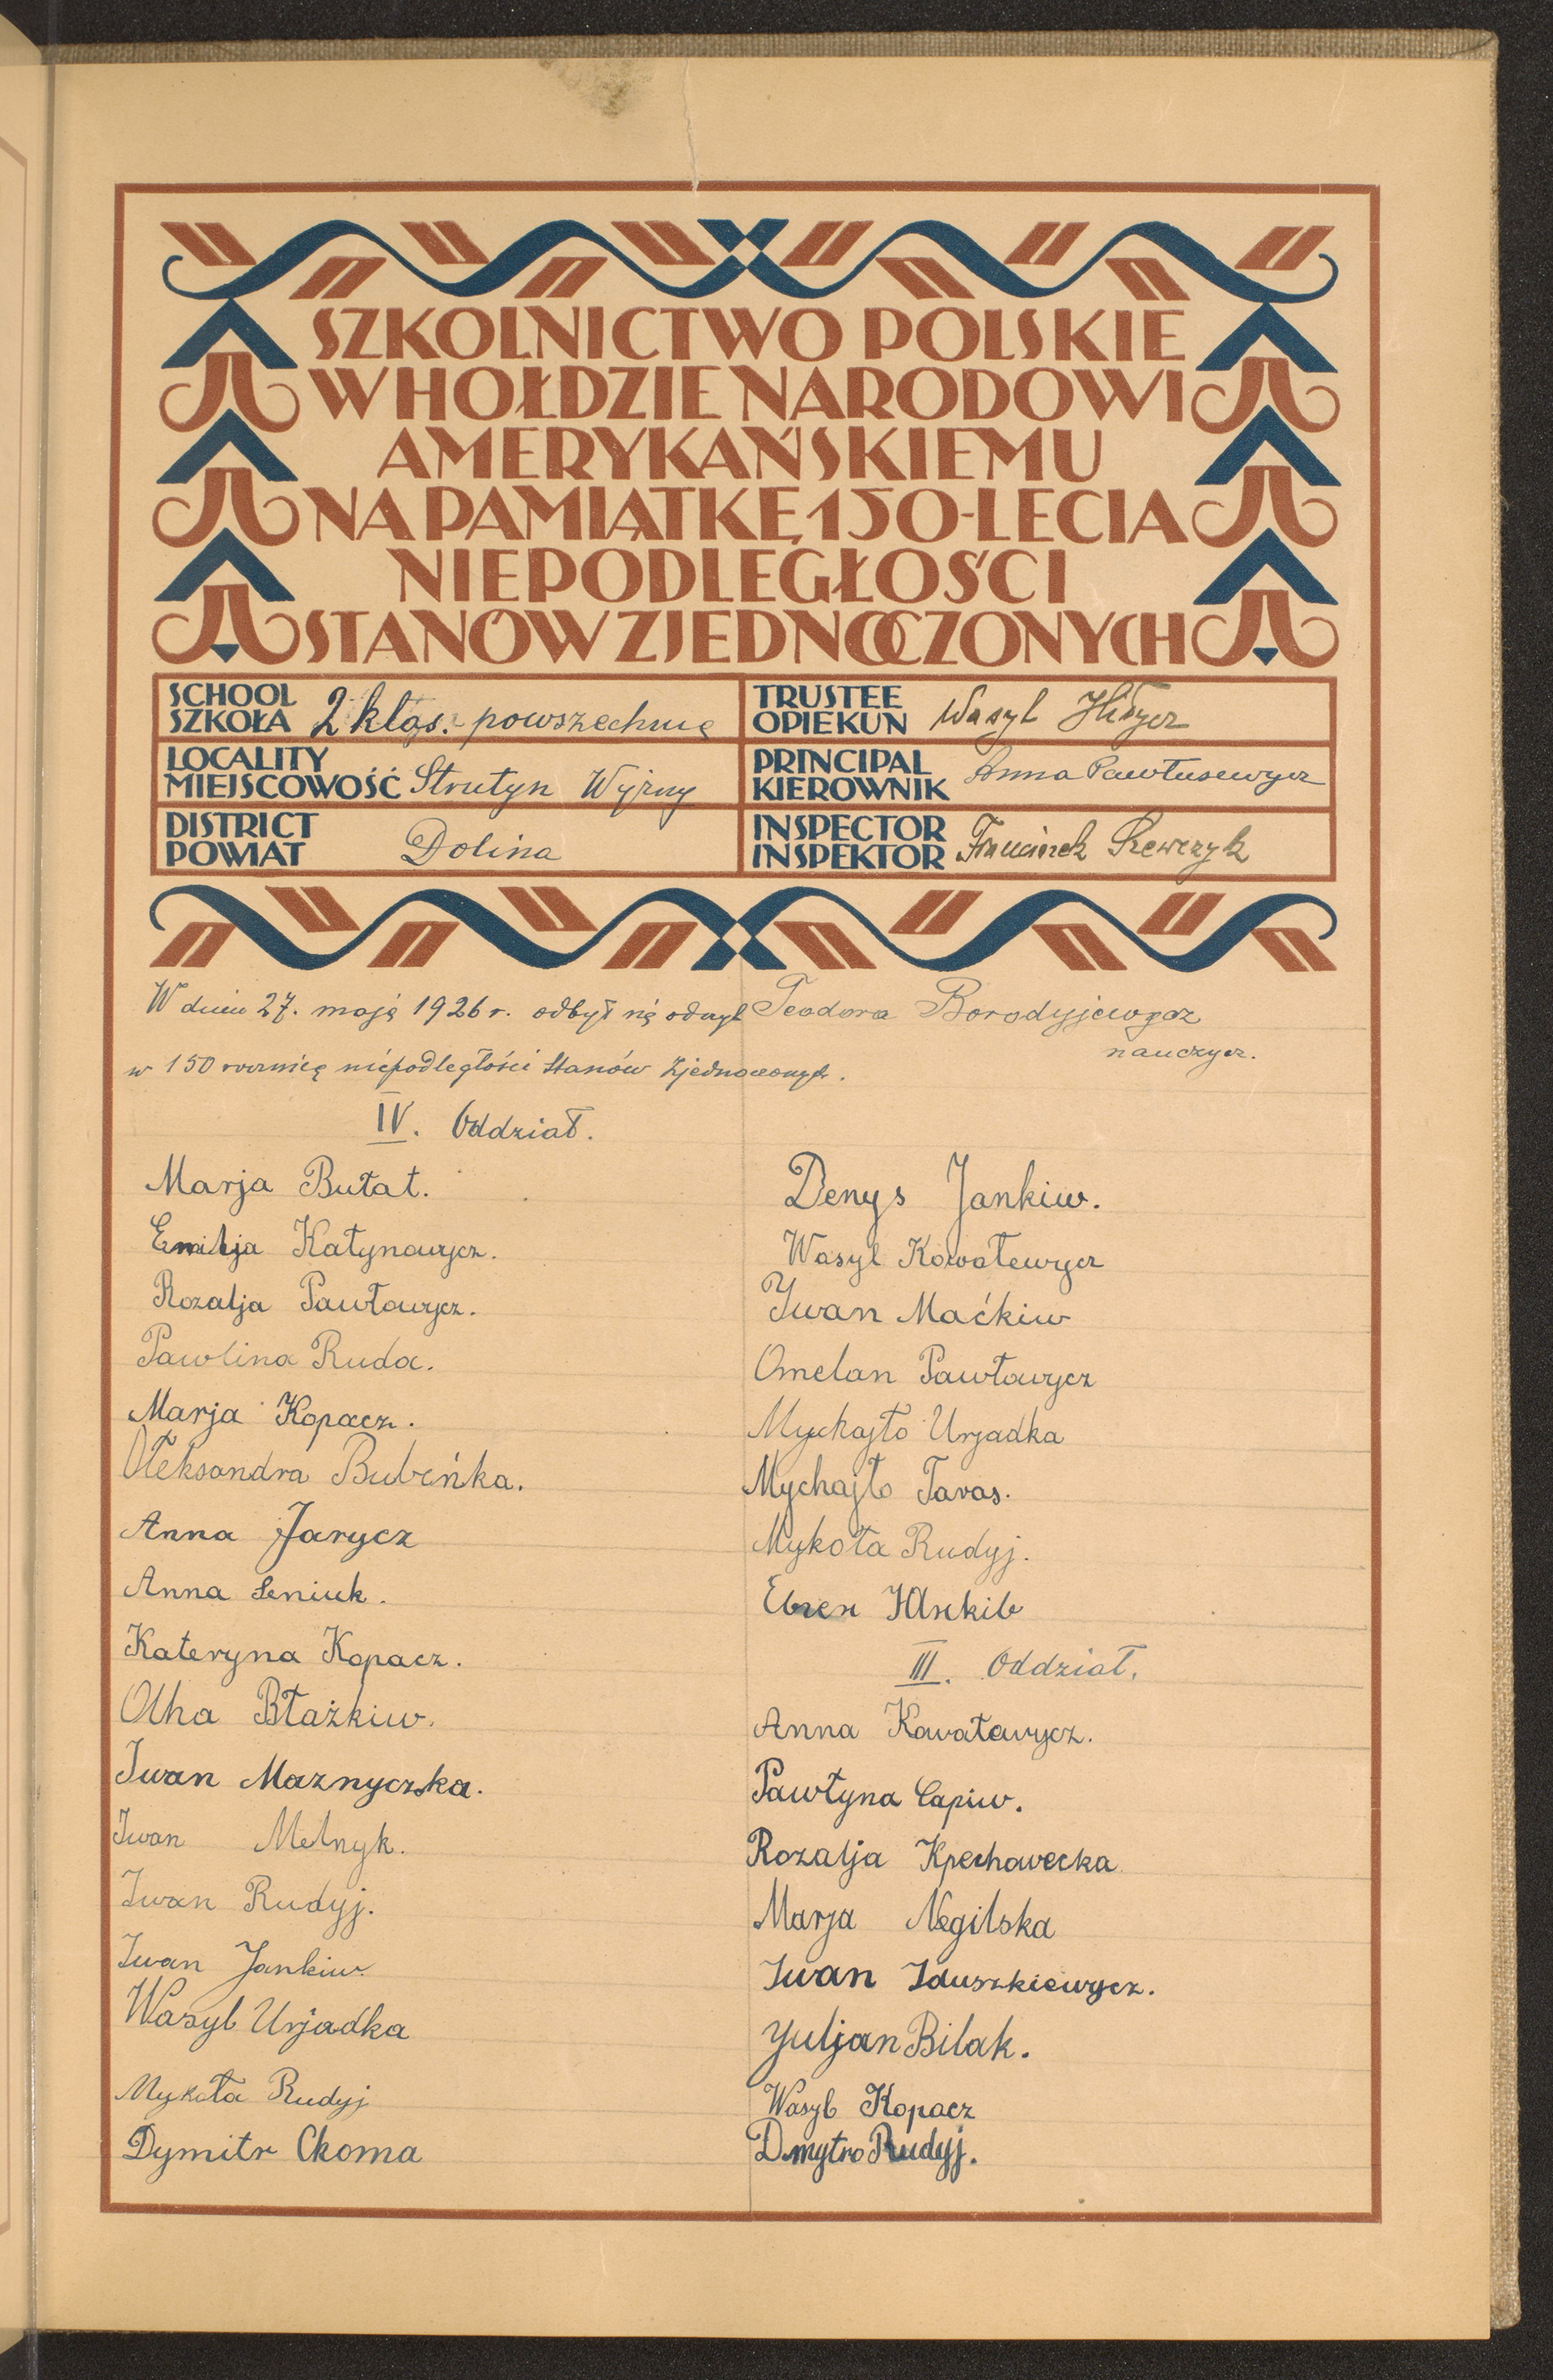 SZKOLNICTWO POLSKIE
W HOŁDZIE NARODOWI
AMERYKAŃSKIEMU
NA PAMIĄTKĘ 150-LECIA
NIEPODLEGŁOŚCI
STANÓW ZJEDNOCZONYCH
SCHOOL
SZKOŁA 2 klas. powszechna
LOCALITY
MIEJSCOWOŚĆ Strutyn Wyżny
DISTRICT
POWIAT Dolina
TRUSTEE
OPIEKUN Wasyl
PRINCIPAL
KIEROWNIK Anna Pawłusewycz
INSPECTOR
INSPEKTOR Franciszek Szewczyk
W dniu 27. maja 1926 r. odbył się odczyt
w 150 rocznicę niepodległości Stanów Zjednoczonych.
Teodora Borodyjewycz
nauczyc.
IV. Oddział.
Marja Bułat.
Emilja Kałynowycz.
Rozalja Pawłowycz.
Pawlina Ruda.
Marja Kopacz.
Ołeksandra Bubeńka.
Anna Jarycz
Anna Seniuk.
Kateryna Kopacz.
Olha Błażkiw.
Iwan Maznyczka.
Iwan Melnyk.
Iwan Rudyj.
Iwan Jankiw.
Wasyl Urjadka
Mykoła Rudyj
Dymitr Choma
Denys Jankiw.
Wasyl Kowalewycz
Iwan Maćkiw
Omelan Pawłowycz
Mychajło Urjadka
Mychajło Taras.
Mykoła Rudyj.
III. Oddział.
Anna Kowalewycz.
Pawłyna Capiw.
Rozalja Krechowecka
Marja Negilska
Iwan Iduszkiewycz.
Yuljan Bilak.
Wasyl Kopacz
Dmytro Rudyj.